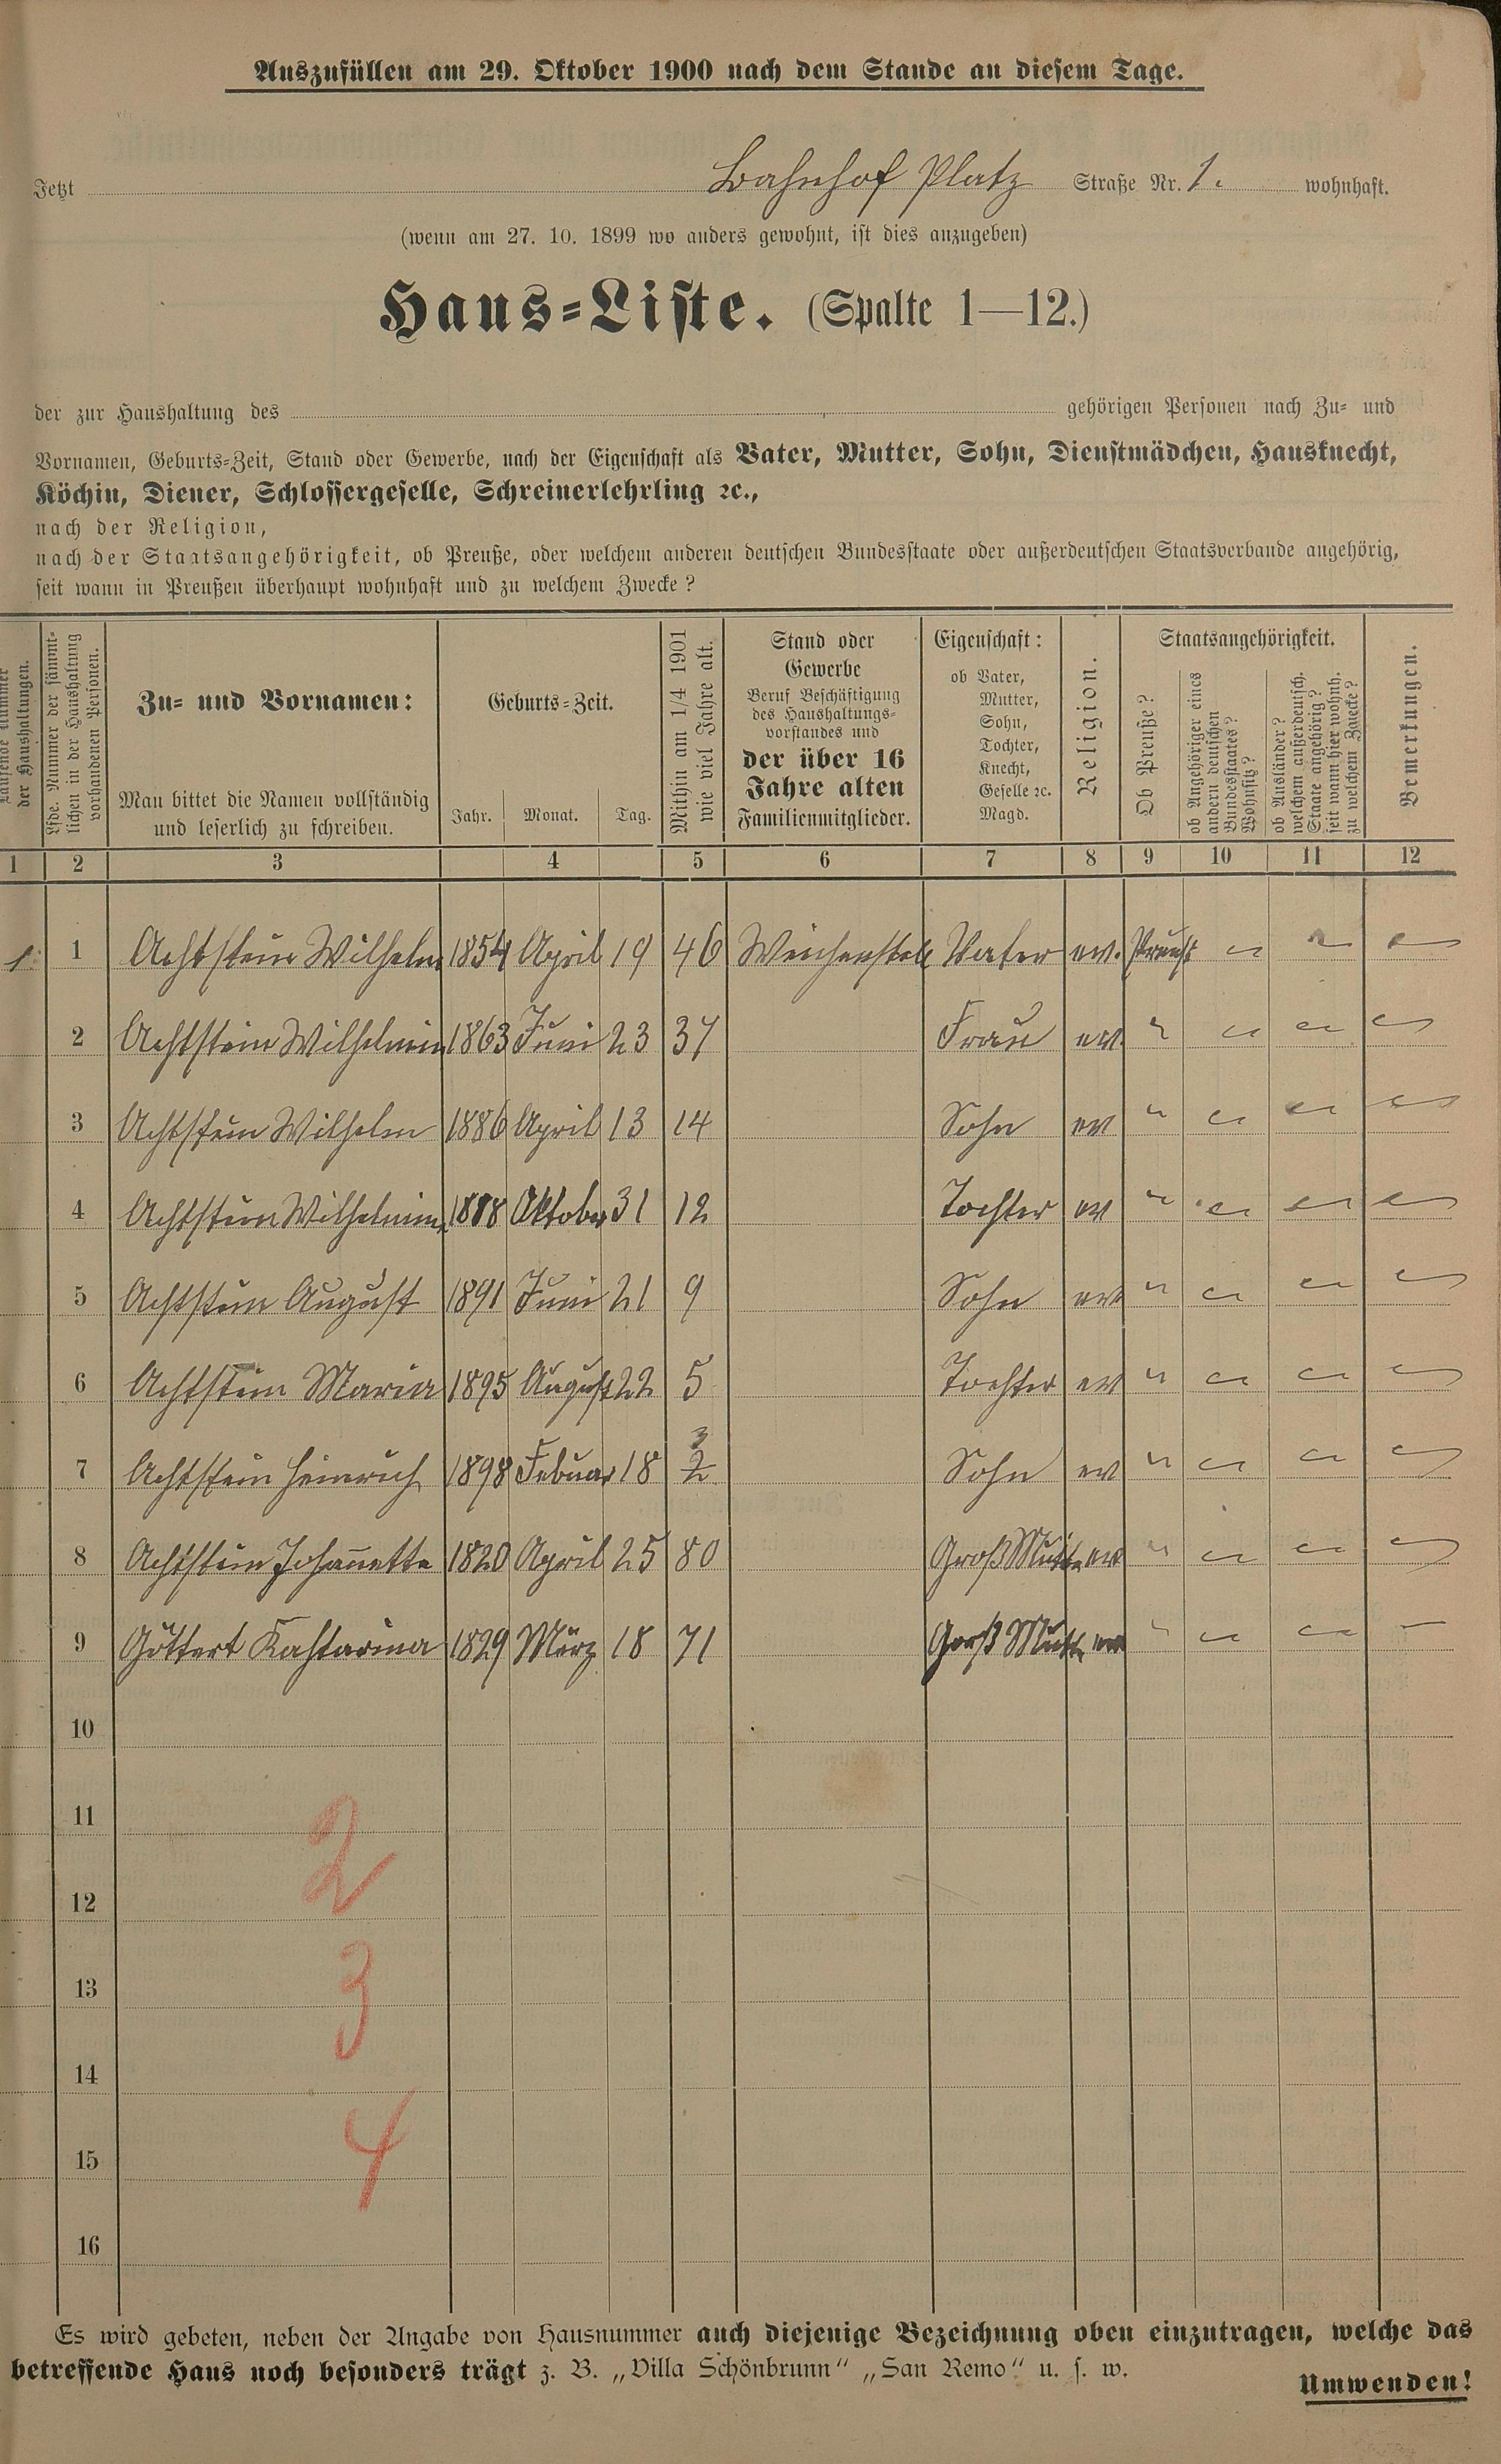 Auszufüllen am 29. Oktober 1900 nach dem Stande an diesem Tage.
Jetzt Bahnhof Platz Straße Nr. 1. wohnhaft.
(wenn am 27. 10. 1899 wo anders gewohnt, ist dies anzugeben)
Haus=Liste. (Spalte 1—12.)
der zur Haushaltung des gehörigen Personen nach Zu= und
Vornamen, Geburts=Zeit, Stand oder Gewerbe, nach der Eigenschaft als Vater, Mutter, Sohn, Dienstmädchen, Hausknecht,
Köchin, Diener, Schlossergeselle, Schreinerlehrling ꝛc.,
nach der Religion,
nach der Staatsangehörigkeit, ob Preuße, oder welchem anderen deutschen Bundesstaate oder außerdeutschen Staatsverbande angehörig,
seit wann in Preußen überhaupt wohnhaft und zu welchem Zwecke?
Laufende Nummer
der Haushaltungen.
Lfde. Nummer der sämmt=
lichen in der Haushaltung
vorhandenen Personen.
Zu= und Vornamen:
Man bittet die Namen vollständig
und leserlich zu schreiben.
Geburts=Zeit.
Jahr. Monat. Tag.
Mithin am 1/4 1901
wie viel Jahre alt.
Stand oder
Gewerbe
Beruf Beschäftigung
des Haushaltungs=
vorstandes und
der über 16
Jahre alten
Familienmitglieder.
Eigenschaft:
ob Vater,
Mutter,
Sohn,
Tochter,
Knecht,
Geselle ꝛc.
Magd.
Religion.
Staatsangehörigkeit.
Ob Preuße?
ob Angehöriger eines
andern deutschen
Bundesstaates?
Wohnsitz?
ob Ausländer?
welchem außerdeutsch.
Staate angehörig?
seit wann hier wohnh.
zu welchem Zwecke?
Bemerkungen.
1 2 3 4 5 6 7 8 9 10 11 12
1. 1 Achtstein Wilhelm 1854 April 19 46 Weichenstell Vater ev. Preuße " " "
2 Achtstein Wilhelmin 1863 Juni 23 37 Frau ev. " " " "
3 Achtstein Wilhelm 1886 April 13 14 Sohn ev " " " "
4 Achtstein Wilhelmine 1888 Oktober 31 12 Tochter ev " " " "
5 Achtstein August 1891 Juni 21 9 Sohn ev " " " "
6 Achtstein Maria 1895 August 22 5 Tochter ev " " " "
7 Achtstein Heinrich 1898 Febuar 18 2 3 Sohn ev " " " "
8 Achtstein Johannette 1820 April 25 80 Groß Mutter ev " " " "
9 Göttert Kahtarina 1829 März 18 71 Groß Mutter ev " " " "
10
11
2
12
13
3
14
4
15
16
Es wird gebeten, neben der Angabe von Hausnummer auch diejenige Bezeichnung oben einzutragen, welche das
betreffende Haus noch besonders trägt z. B. „Villa Schönbrunn" „San Remo" u. s. w.
Umwenden!